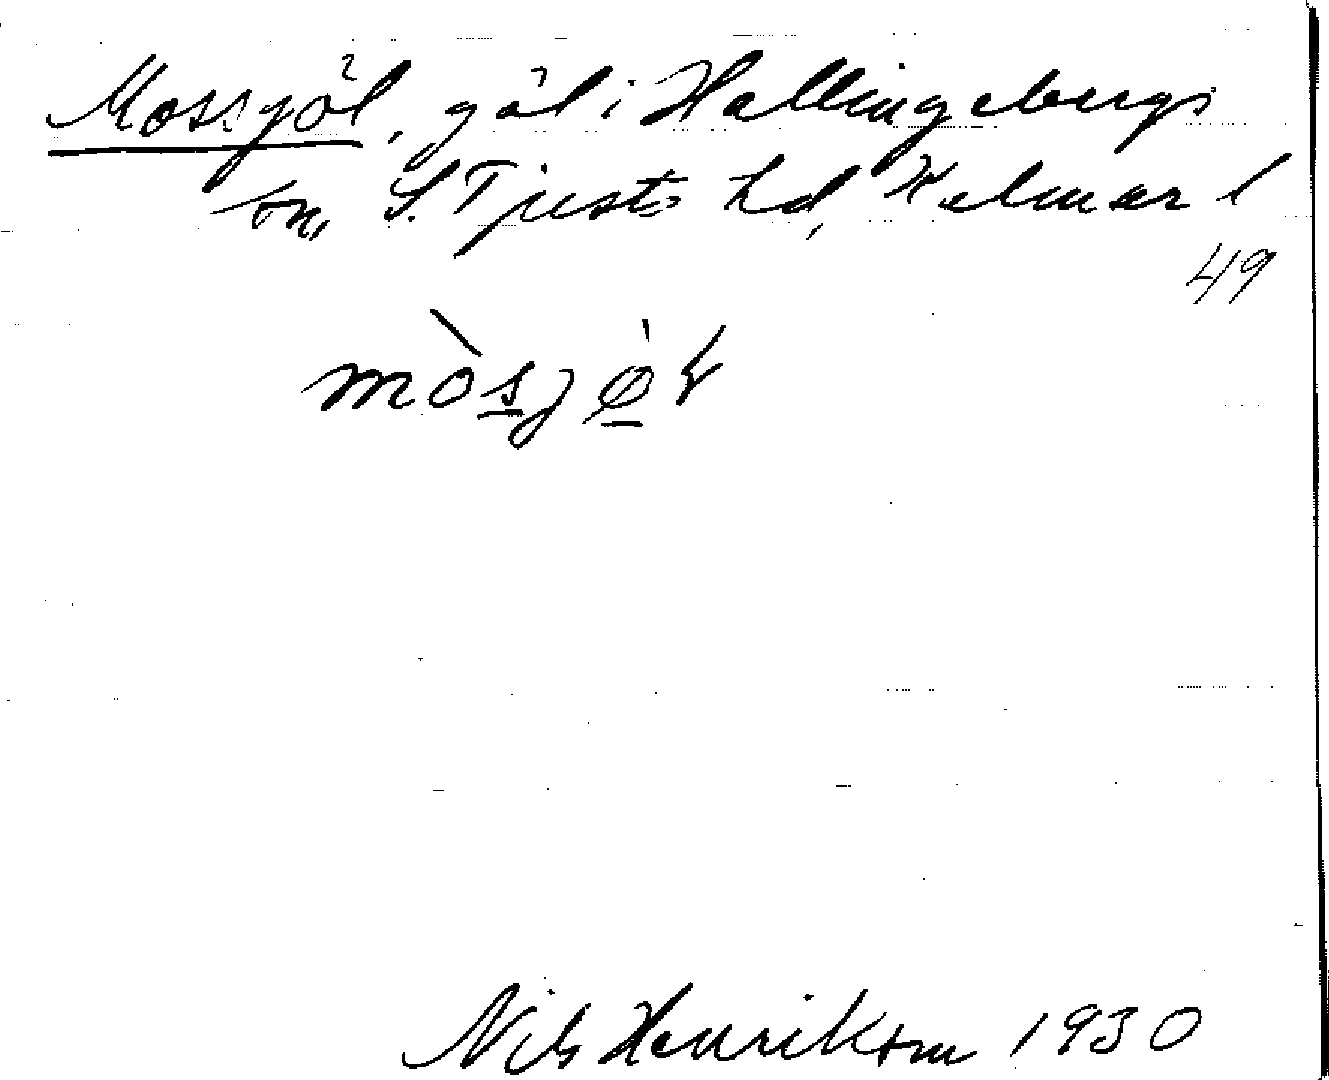 Mossgöl, göl i Hallingebergs
sn, S. Tjusts hd, Kalmar l
49
mòsjø̀l
Nils Henrikson 1930